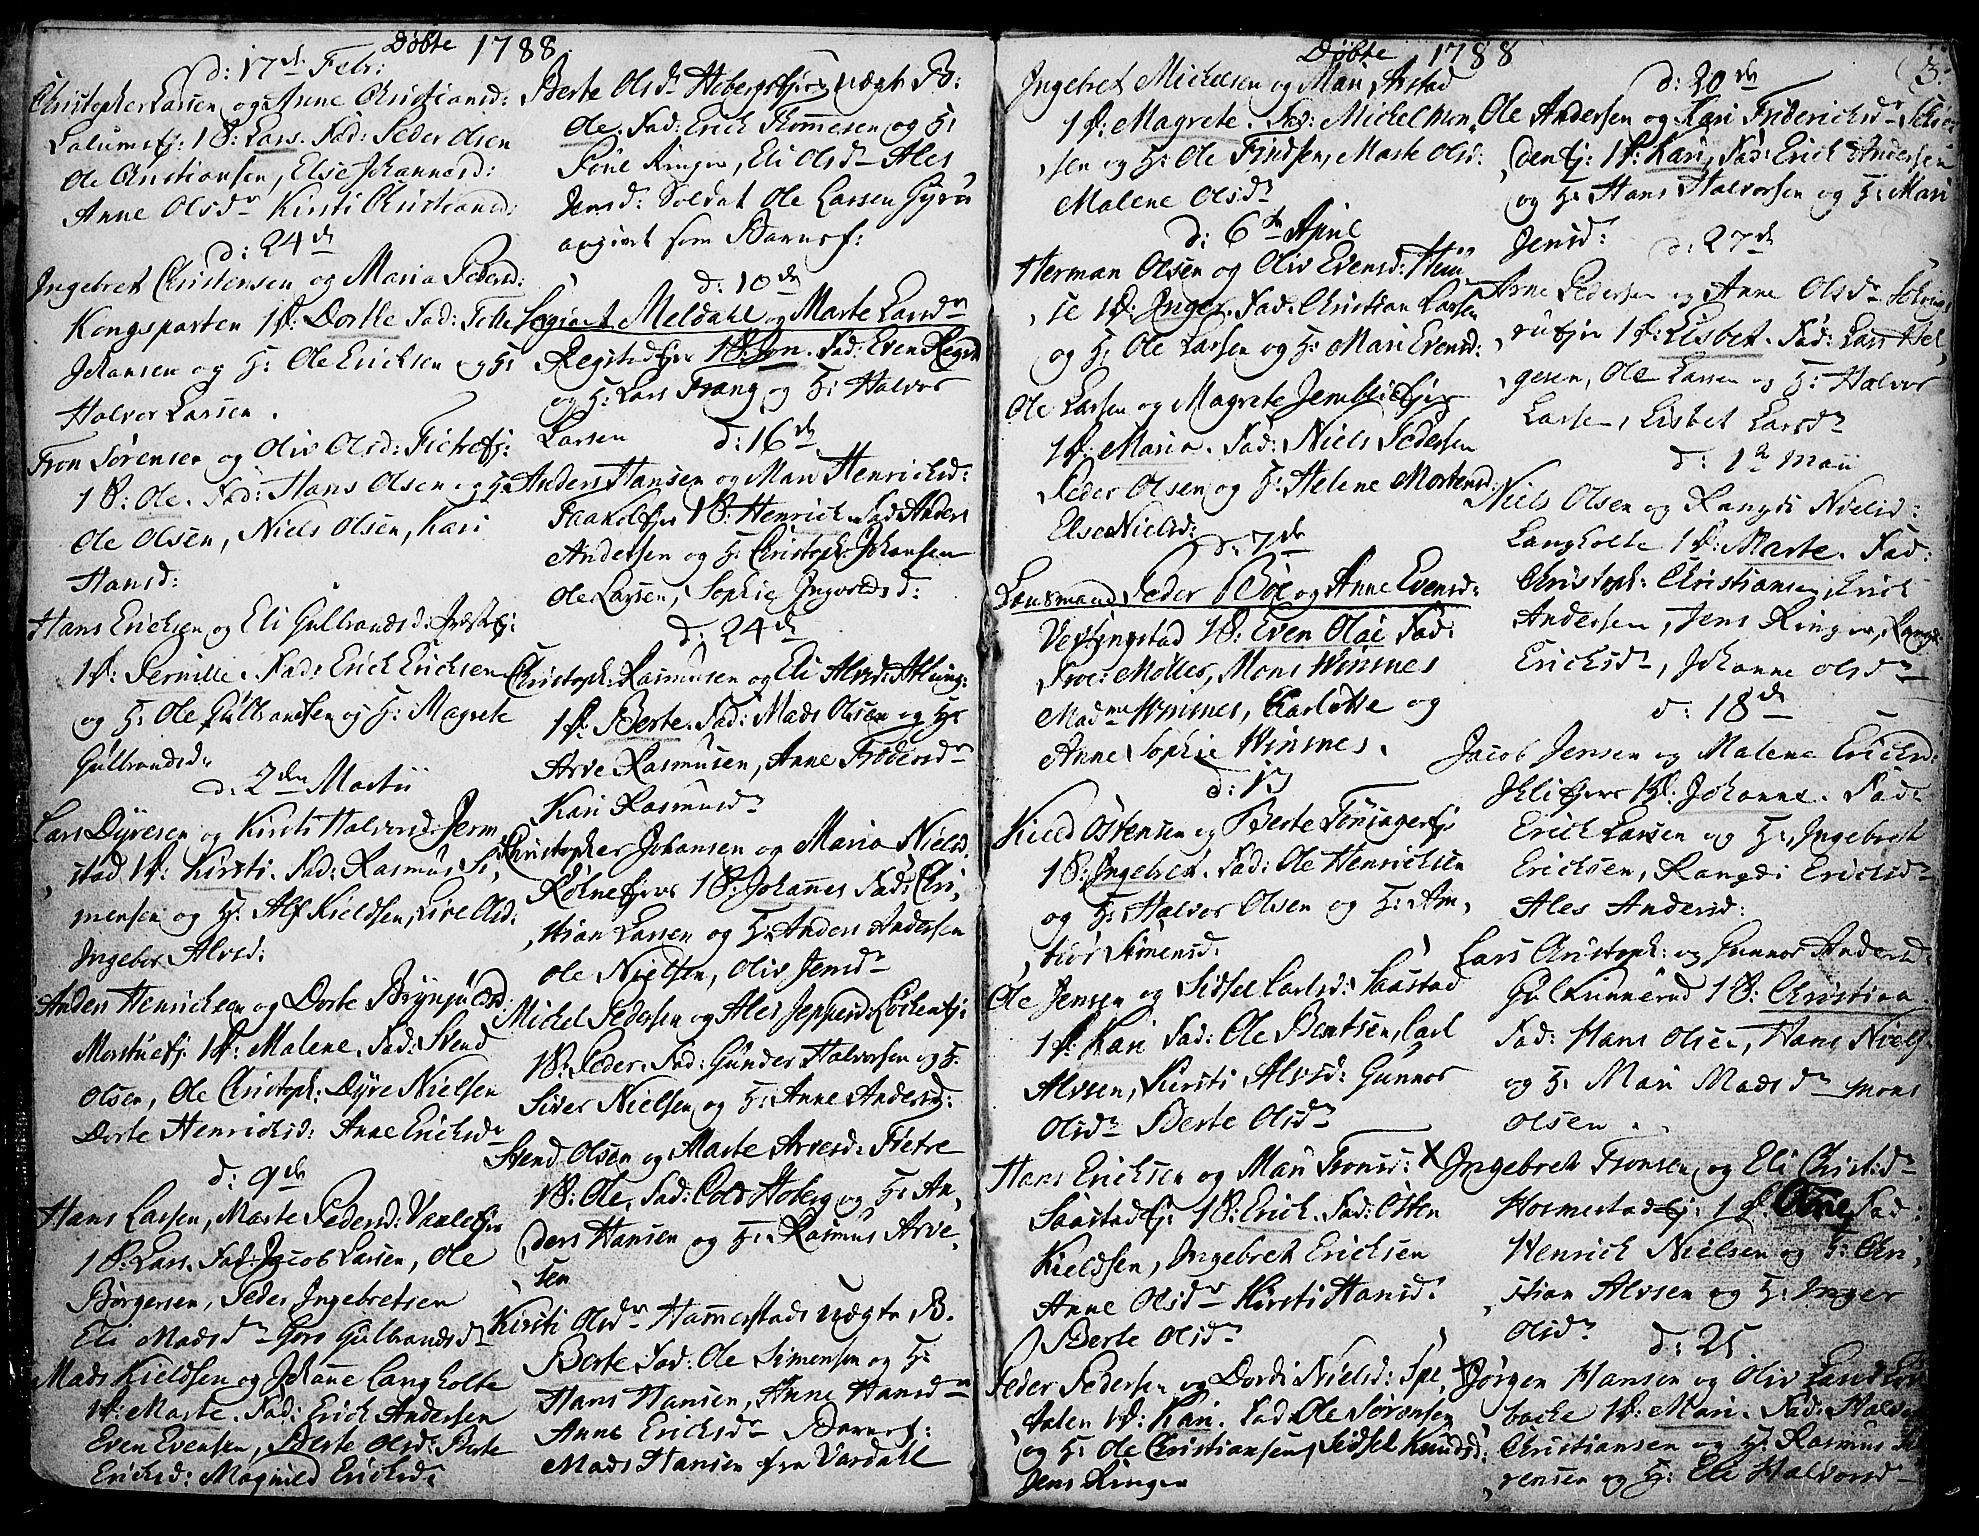 Døbte 1788
d: 17de Febr:
Christopher Larsen og Anne Christiansd:
Lalumsfj: 1 B: Lars. Fad: Peder Olsen
Ole Christiansen, Else Johannesd:
Anne Olsdr Kirsti Christiansd:
d: 24de
Ingebret Christensen og Maria Pedersd:
Kongsparten 1 P: Dorthe Fad:
Johansen og H: Ole Ericksen og H:
Halvor Larsen.
Tron Sørensen og Oliv Olsd:
1 B: Ole. Fad: Hans Olsen og H:
Ole Olsen, Niels Olsen, Kari
Hansd:
Hans Ericksen og Eli Gulbrandsd:
1 P: Pernille. Fad: Erick Ericksen
og H: Ole Gulbrandsen og H: Magrete
Gulbrandsd:
d: 2den Martii
Lars Dyresen og Kirsti Halvorsd: Jerm,
stad 1 P: Kirsti. Fad: Rasmus Si,
mensen og H: Alf Kieldsen, Live Olsd:
Ingebor Alvsd:
Anders Henricksen og Dorte Brynjulvsd:
Morstuefj: 1 P: Malene. Fad: Svend
Olsen, Ole Christoph: Dyre Nielsen
Dorte Henricksd: Anne Ericksdr
d: 9de
Hans Larsen, Marte Pedersd: Vaalefjer
1 B: Lars. Fad: Jacob Larsen, Ole
Børgersen, Peder Ingebretsen
Eli Madsdr Goro Gulbrandsdr
Mads Kieldsen og Johanne Langholte
1 P: Marte. Fad: Erick Andersen
Even Evensen, Berte Olsd: Berte
Ericksd: Magnild Ericksd:
Berte Olsdr Hobergsfjer uægte B:
Ole. Fad: Erick Tommesen og H:
Poul Ringer, Eli Olsdr Ales
Jensd: Soldat Ole Larsen Gyrud
angivet som Barnef:
d: 10de
Sergiant Meldahl og Marte Larsdr
Regstadfjer 1 B: Jon. Fad: Even Regst
og H: Lars Frang og H: Halvor
Larsen
d: 16de
Anders Hansen og Mari Henricksd:
1 B: Henrick Fad Anders
Andersen og H: Christoph: Johansen
Ole Larsen, Sophie Ingvoldsd:
d: 24de
Christoph: Rasmusen og Eli Alvsd:
1 P: Berte. Fad: Mads Olsen og H:
Arve Rasmusen, Anne
Kari Rasmusdr
Christopher Johansen og Maria Nielsd:
1 B: Johannes Fad: Chri,
stian Larsen og H: Anders Andersen
Ole Nielsen, Oliv Jensdr
Michel Pedersen og Ales Jeppesd:
1 B: Peder. Fad: Gunder Halvorsen og H:
Siver Nielsen og H: Anne Andersd:
Svend Olsen og Marte Arvesd:
1 B: Ole. Fad: Hoberg og H: An,
ders Hansen og H: Rasmus Arve,
sen
Kirsti Olsdr Hammerstads uægte B.
Berte Fad: Ole Simensen og H:
Hans Hansen, Anne Hansdr
Anne Ericksdr Barnef:
Mads Hansen fra Vardahl
Døbte 1788
Ingebret Michelsen og Mari
1 P: Magrete. Fad: Michel Mon,
sen og H: Ole Findsen, Marte Olsd:
Malene Olsdr
d: 6te April
Herman Olsen og Oliv Evensd:
se 1 P: Inger. Fad: Christian Larsen
og H: Ole Larsen og H: Mari Evensd:
Ole Larsen og Magrete
1 P: Maria. Fad: Niels Pedersen
Peder Olsen og H: Helene Mortensd:
Else Nielsd:
d: 7de
Lensmand Peder Bøe og Anne Evensd:
Vestyngstad 1 B: Even Olai Fad:
Proc: Møller, Mons Winsnes
Madme Winsnes, Karlotte og
Anne Sophie Winsnes.
d: 13
Kield Østensen og Berte
1 B: Ingebret. Fad: Ole Henricksen
og H: Halvor Olsen og H: Am,
Simensd:
Ole Jensen og Sidsel Carlsd: Saastad
1 P: Kari Fad: Ole Bentsen, Carl
Alvsen, Kersti Alvsd: Gunnor
Olsdr Berte Olsdr
Hans Ericksen og Mari Tronsd:
Saastadfj: 1 B: Erick. Fad: Østen
Kieldsen, Ingebret Ericksen
Anne Olsdr Kirsti Hansd:
Berte Olsdr
Peder Pedersen og Dordi Nielsd: Spe,
talen 1 P: Kari. Fad Ole Sørensen
og H: Ole Christiansen, Sidsel Knudsd:
Jens Ringer
3.
d: 20de
Ole Andersen og Kari Friderichsdr
1 P: Kari, Fad: Erick Andersen
og H: Hans Halvorsen og H: Mari
Jensd:
d: 27de
Arne Pedersen og Anne Olsdr
1 P: Lisbet. Fad: Lars Hel,
gesen, Ole Larsen og H: Halvor
Larsen, Lisbet Larsdr
d: 1te Maii
Niels Olsen og Rangdi Nielsd:
Langholte 1 P: Marte. Fad:
Christoph: Christiansen, Erick
Andersen, Jens Ringer, Rangdi
Ericksdr, Johanne Olsdr
d: 18de
Jacob Jensen og Malene Ericksd:
1 P: Johanne. Fad:
Erick Larsen og H: Ingebret
Ericksen, Rangdi Ericksdr
Ales Andersd:
Lars Christoph: og Gunnor Andersd:
1 B: Christian.
Fad: Hans Olsen, Hans Niels:
og H: Mari Madsdr Mons
Olsen.
X Ingebret Tronsen og Eli Christ:dr
Hormestadfj: 1 P: Fad:
Henrick Nielsen og H: Chri,
stian Alvsen og H: Inger
Olsdr
d: 25
X Jørgen Hansen og Oliv
backe 1 P: Mari. Fad: Halvor
Christiansen og H: Rasmus Sø,
rensen og H: Eli Halvorsdr